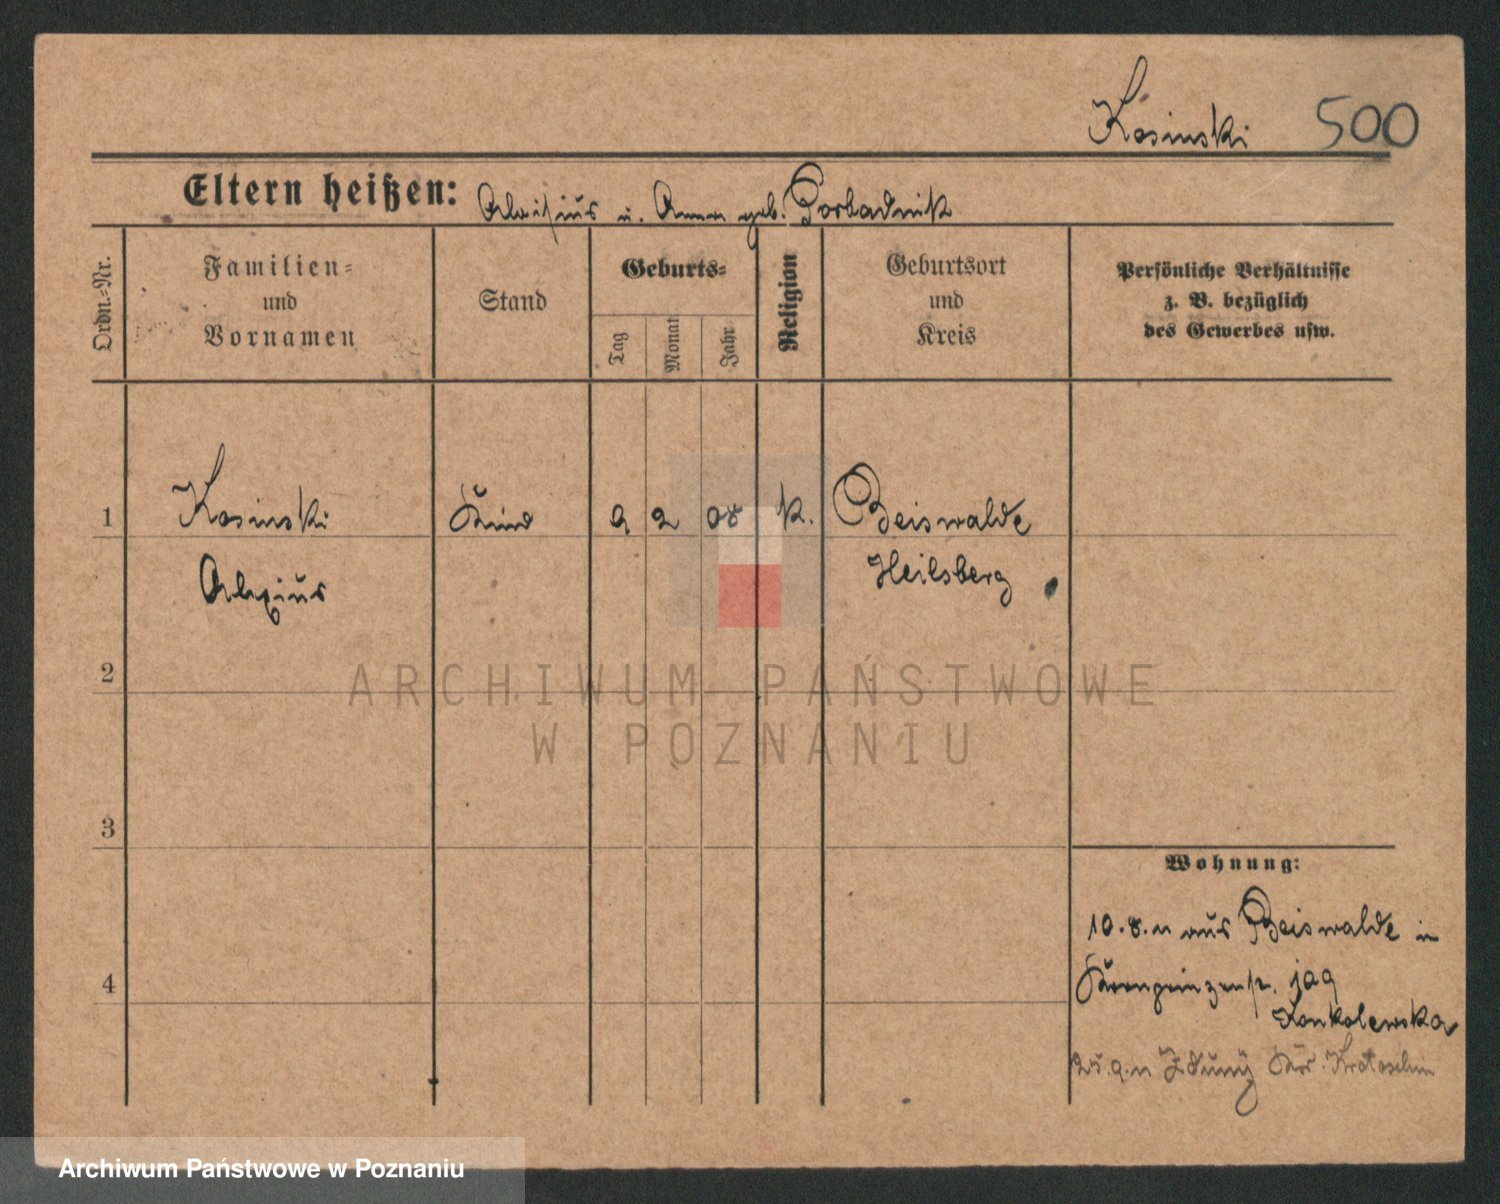 Kosinski 500
Eltern heißen: Aloisius u. Anna geb. Porbadnik
Ordn.-Nr.
Familien-
und
Vornamen
Stand
Geburts-
Tag
Monat
Jahr
Religion
Geburtsort
und
Kreis
Persönliche Verhältnisse
z. B. bezüglich
des Gewerbes usw.
1 Kosinski Kind 9 2 08 k. Beiswalde
Alexius Heilsberg
2
3
4
Wohnung:
10.8.11 aus Beiswalde in
Kronprinzenstr. 109
Konkolewska
25.9.11 Zduny Krs. Krotoschin
ARCHIWUM PAŃSTWOWE
W POZNANIU
Archiwum Państwowe w Poznaniu